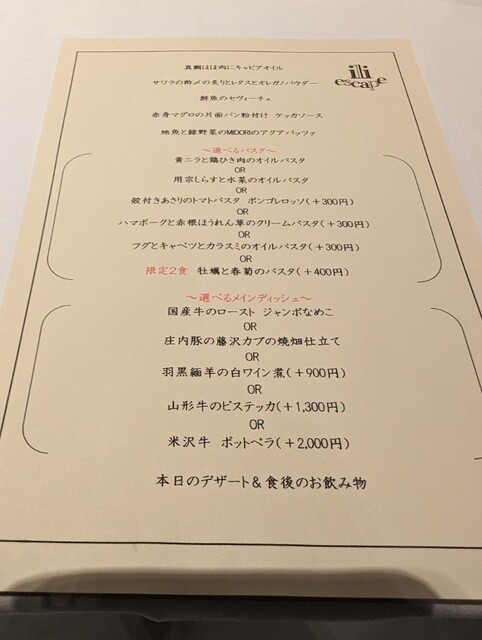 ili
escape
真鯛ほほ肉にキャビアオイル
サワラの酢〆の炙りとレタスとオレガノパウダー
鮮魚のセヴィーチェ
赤身マグロの片面パン粉付け ケッカソース
地魚と緑野菜のMIDORIのアクアパッツァ
～選べるパスタ～
黄ニラと鶏ひき肉のオイルパスタ
OR
用宗しらすと水菜のオイルパスタ
OR
殻付きあさりのトマトパスタ ボンゴレロッソ(+300円)
OR
ハマポークと赤根ほうれん草のクリームパスタ(+300円)
OR
フグとキャベツとカラスミのオイルパスタ(+300円)
OR
限定2食 牡蠣と春菊のパスタ(+400円)
～選べるメインディッシュ～
国産牛のロースト ジャンボなめこ
OR
庄内豚の藤沢カブの焼畑仕立て
OR
羽黒緬羊の白ワイン煮(+900円)
OR
山形牛のビステッカ(+1,300円)
OR
米沢牛 ポットベラ(+2,000円)
本日のデザート&食後のお飲み物